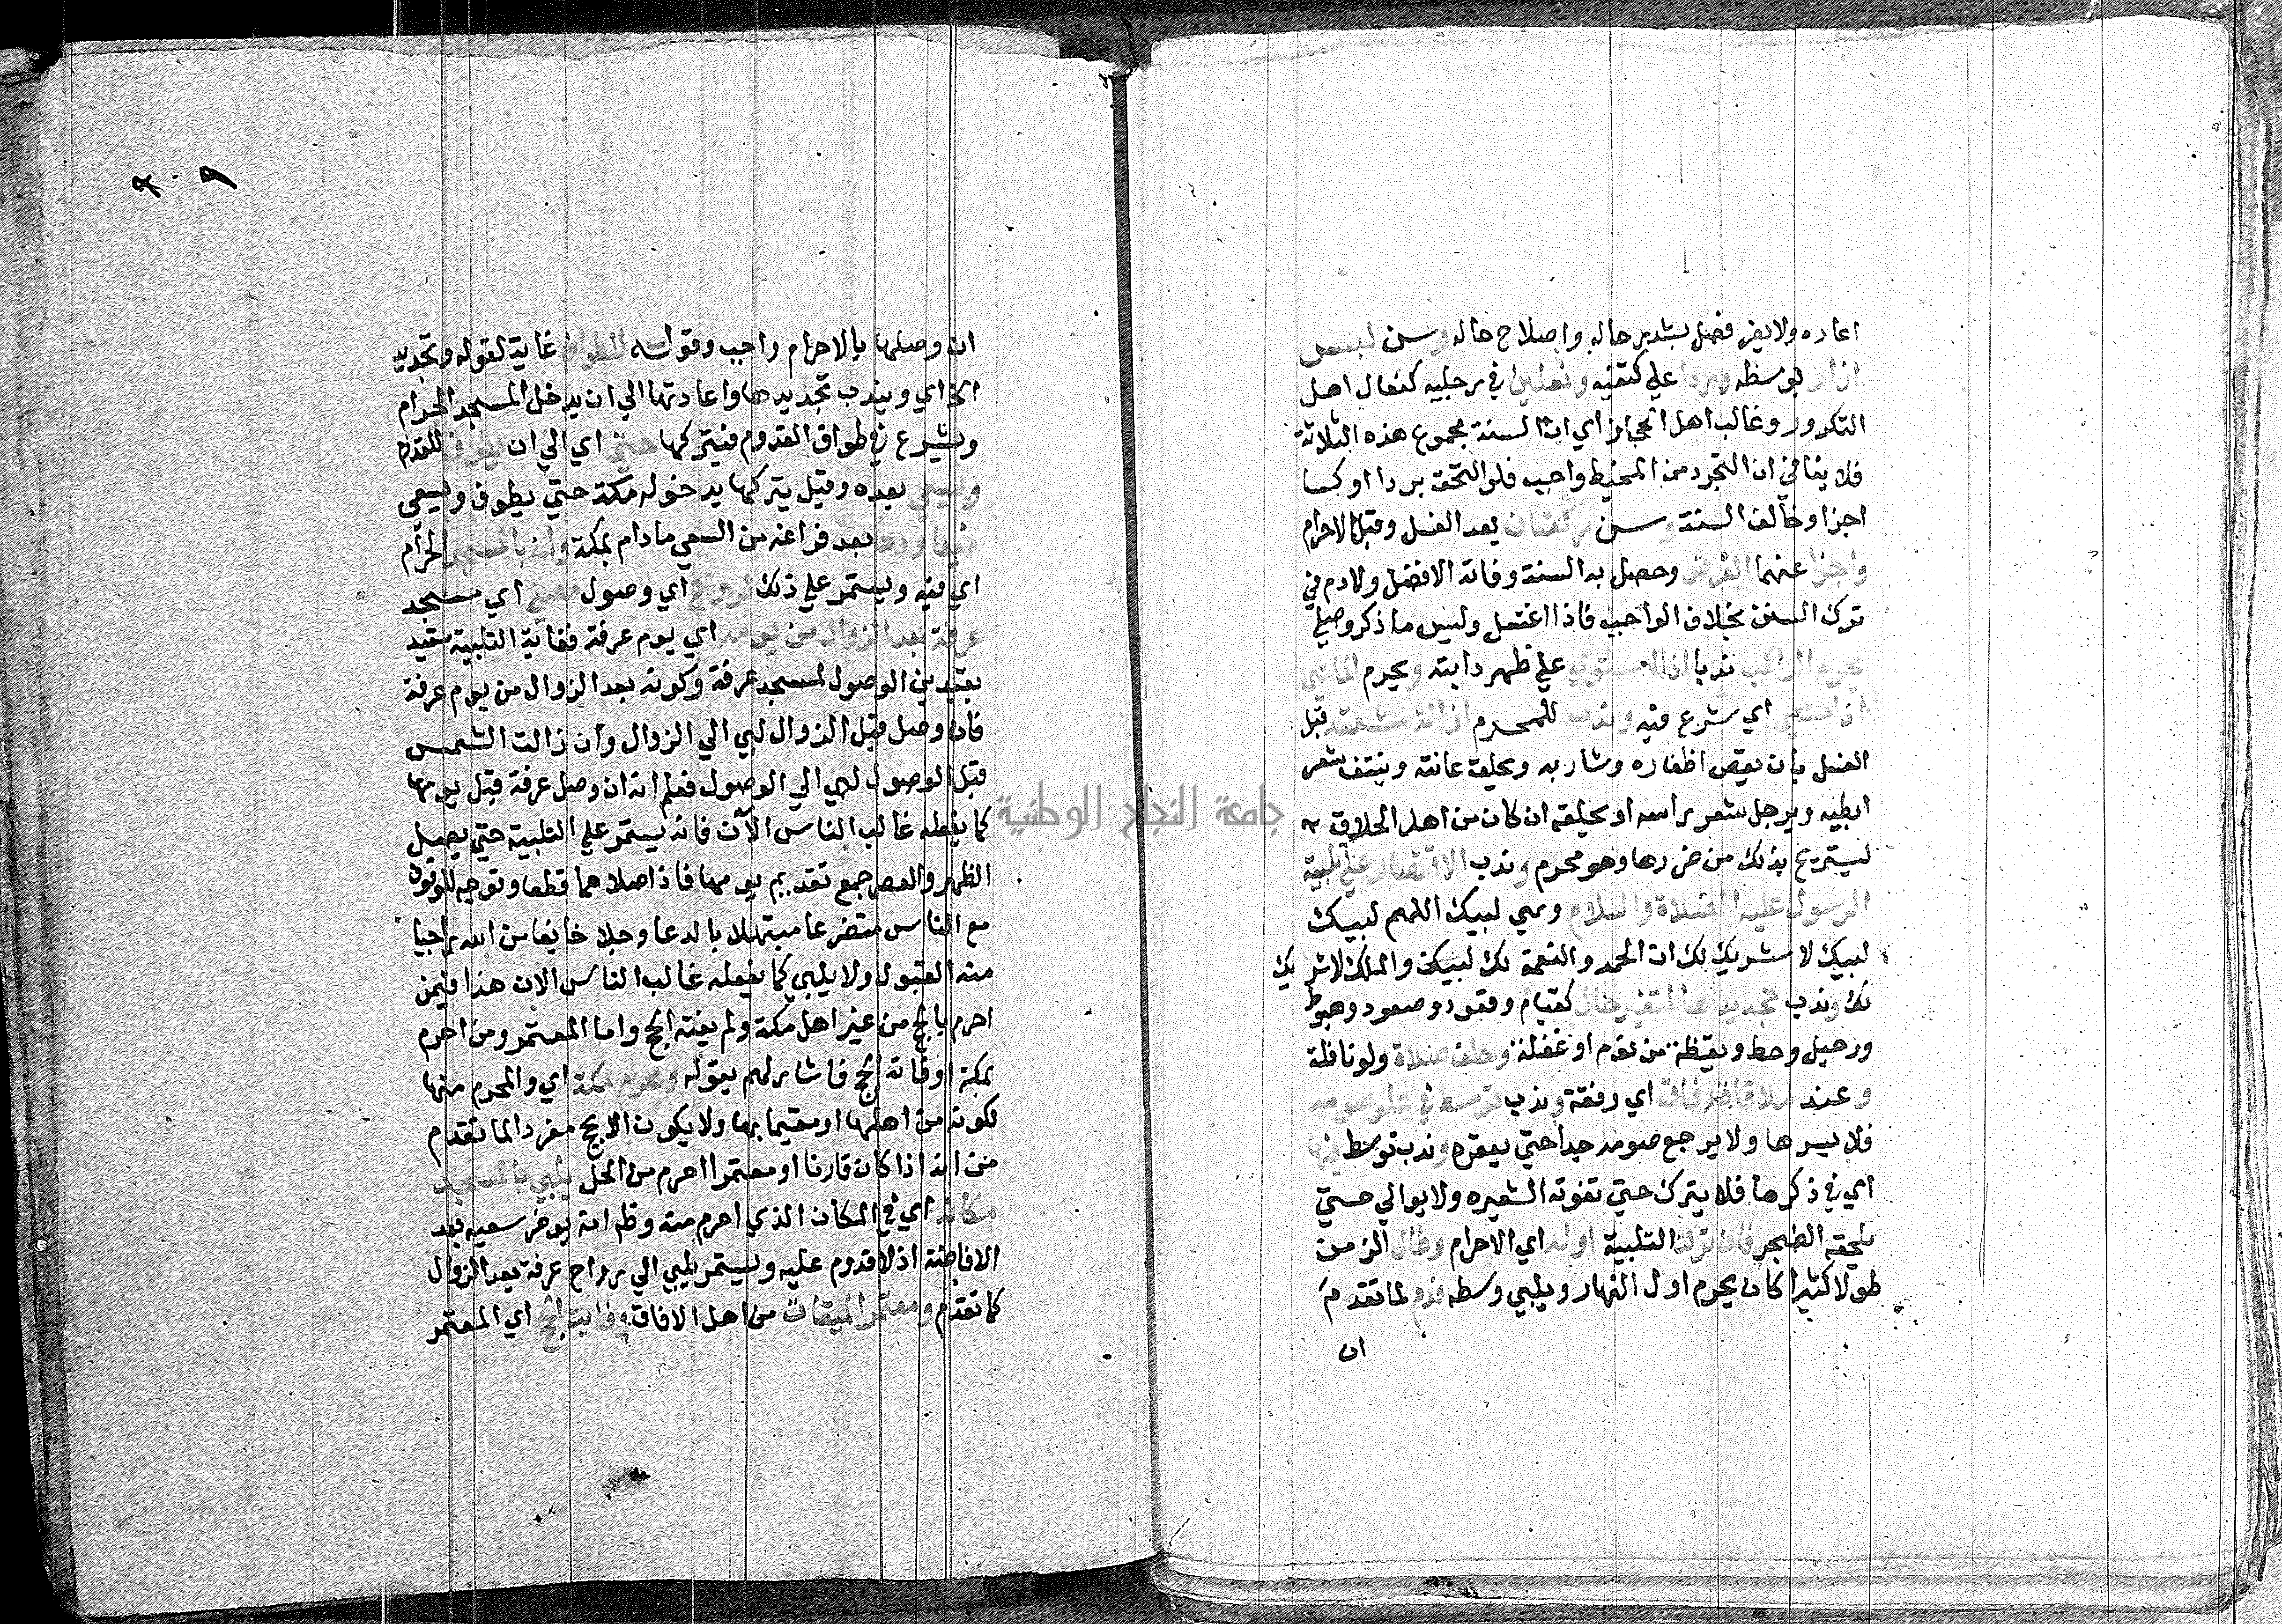 اعاده ولا يفر فصل بتدير حاله واصلاح حاله وسن لبس
ازار بوسطه وردا علي كتفيه ونعلين في رجليه كنعال اهل
التكرور وغالب اهل الحجاز اي ان السنة مجموع هذه الثلاثة
فلا ينافي ان التجرد من المخيط واجب فلو التحق بردا او كسا
اجزا وخالف السنة وسن ركعتان بعد الغسل وقبل الاحرام
واجزا عنهما الفرض وحصل به السنة وفاته الافضل ولادم في
ترك السنن بخلاف الواجب فاذا اغتسل ولبس ما ذكر وصلي
يحرم الراكب ندبا اذا استوي علي ظهر دابته ويحرم الماشي
اذا مشي اي شرع فيه وندب للمحرم ازالة شعثه قبل
الغسل بان يقص اظفاره وشاربه ويحلق عانته وينتف شعر
ابطيه ويرجل شعر راسه او يحلقه ان كان من اهل الحلاق
ليستريح بذلك من ضررها وهو محرم وندب الاقتصار علي تلبية
الرسول عليه الصلاة والسلام وهي لبيك اللهم لبيك
لبيك لا شريك لك ان الحمد والنعمة لك لبيك والملك لا شريك
لك وندب تجديدها لتغير حال كقيام وقعود وصعود وهبوط
ورحيل وحط ويقظة من نوم او غفلة وخلف صلاة ولو نافلة
وعند ملاقاة رفاق اي رفقة وندب توسط في علو صوته
فلا يسرها ولا يرجع صوته جدا حتي يعقره وندب توسط فيها
اي في ذكرها فلا يترك حتي تفوته الشعيره ولا يوالي حتي
يلحقه الضجر فان تركت التلبية اوله اي الاحرام وطال الزمن
طولا كثيرا كان يحرم اول النهار ويلبي وسطه فدم لما تقدم
ان
٩٠٢
ان وصلها بالاحرام واجب وقوله للطواف غاية لقوله وتجديد
الخ اي ويندب تجديدها واعادتها الي ان يدخل المسجد الحرام
ويشرع في طواف القدوم فيتركها حتي اي الي ان يطوف للقدوم
ويسعي بعده وقيل يتركها بدخوله مكة حتي يطوف ويسعي
فيعاودها بعد فراغه من السعي مادام بمكة وان بالمسجد الحرام
اي فيه ويستمر علي ذلك لرواح اي وصول مصلي اي مسجد
عرفة بعد الزوال من يومه اي يوم عرفة فغاية التلبية مقيد
بقيدين الوصول لمسجد عرفة وكونه بعد الزوال من يوم عرفة
فان وصل قبل الزوال لبي الي الزوال وان زالت الشمس
قبل الوصول لبي الي الوصول فعلم انه ان وصل عرفة قبل يومها
كما يفعله غالب الناس الآن فانه يستمر علي التلبية حتي يصل
الظهر والعصر جمع تقديم يومها فاذا صلاهما قطعا وتوجه للوقوف
مع الناس متضرعا مبتهلا بالدعا وجلا خايفا من الله راجيا
منه القبول ولا يلبي كما يفعله غالب الناس الان هذا فيمن
احرم بالحج من غير اهل مكة ولم يفته الحج واما المعتمر ومن احرم
بمكة او فاته الحج فاشار لهم بقوله ومحرم مكة اي والمحرم منها
لكونه من اهلها او مقيما بها ولا يكون الا بحج مفرد الما تقدم
من انه اذا كان قارنا او معتمرا احرم من الحل يلبي بالمسجد
مكانه اي في المكان الذي احرم منه وظم انه يوخر سعيه بعد
الافاضة اذ لا قدوم عليه ويستمر يلبي الي رواح عرفة بعد الزوال
كما تقدم ومعتمر الميقات من اهل الافاق وفايت الحج اي المعتمر
جامعة النجاح الوطنية